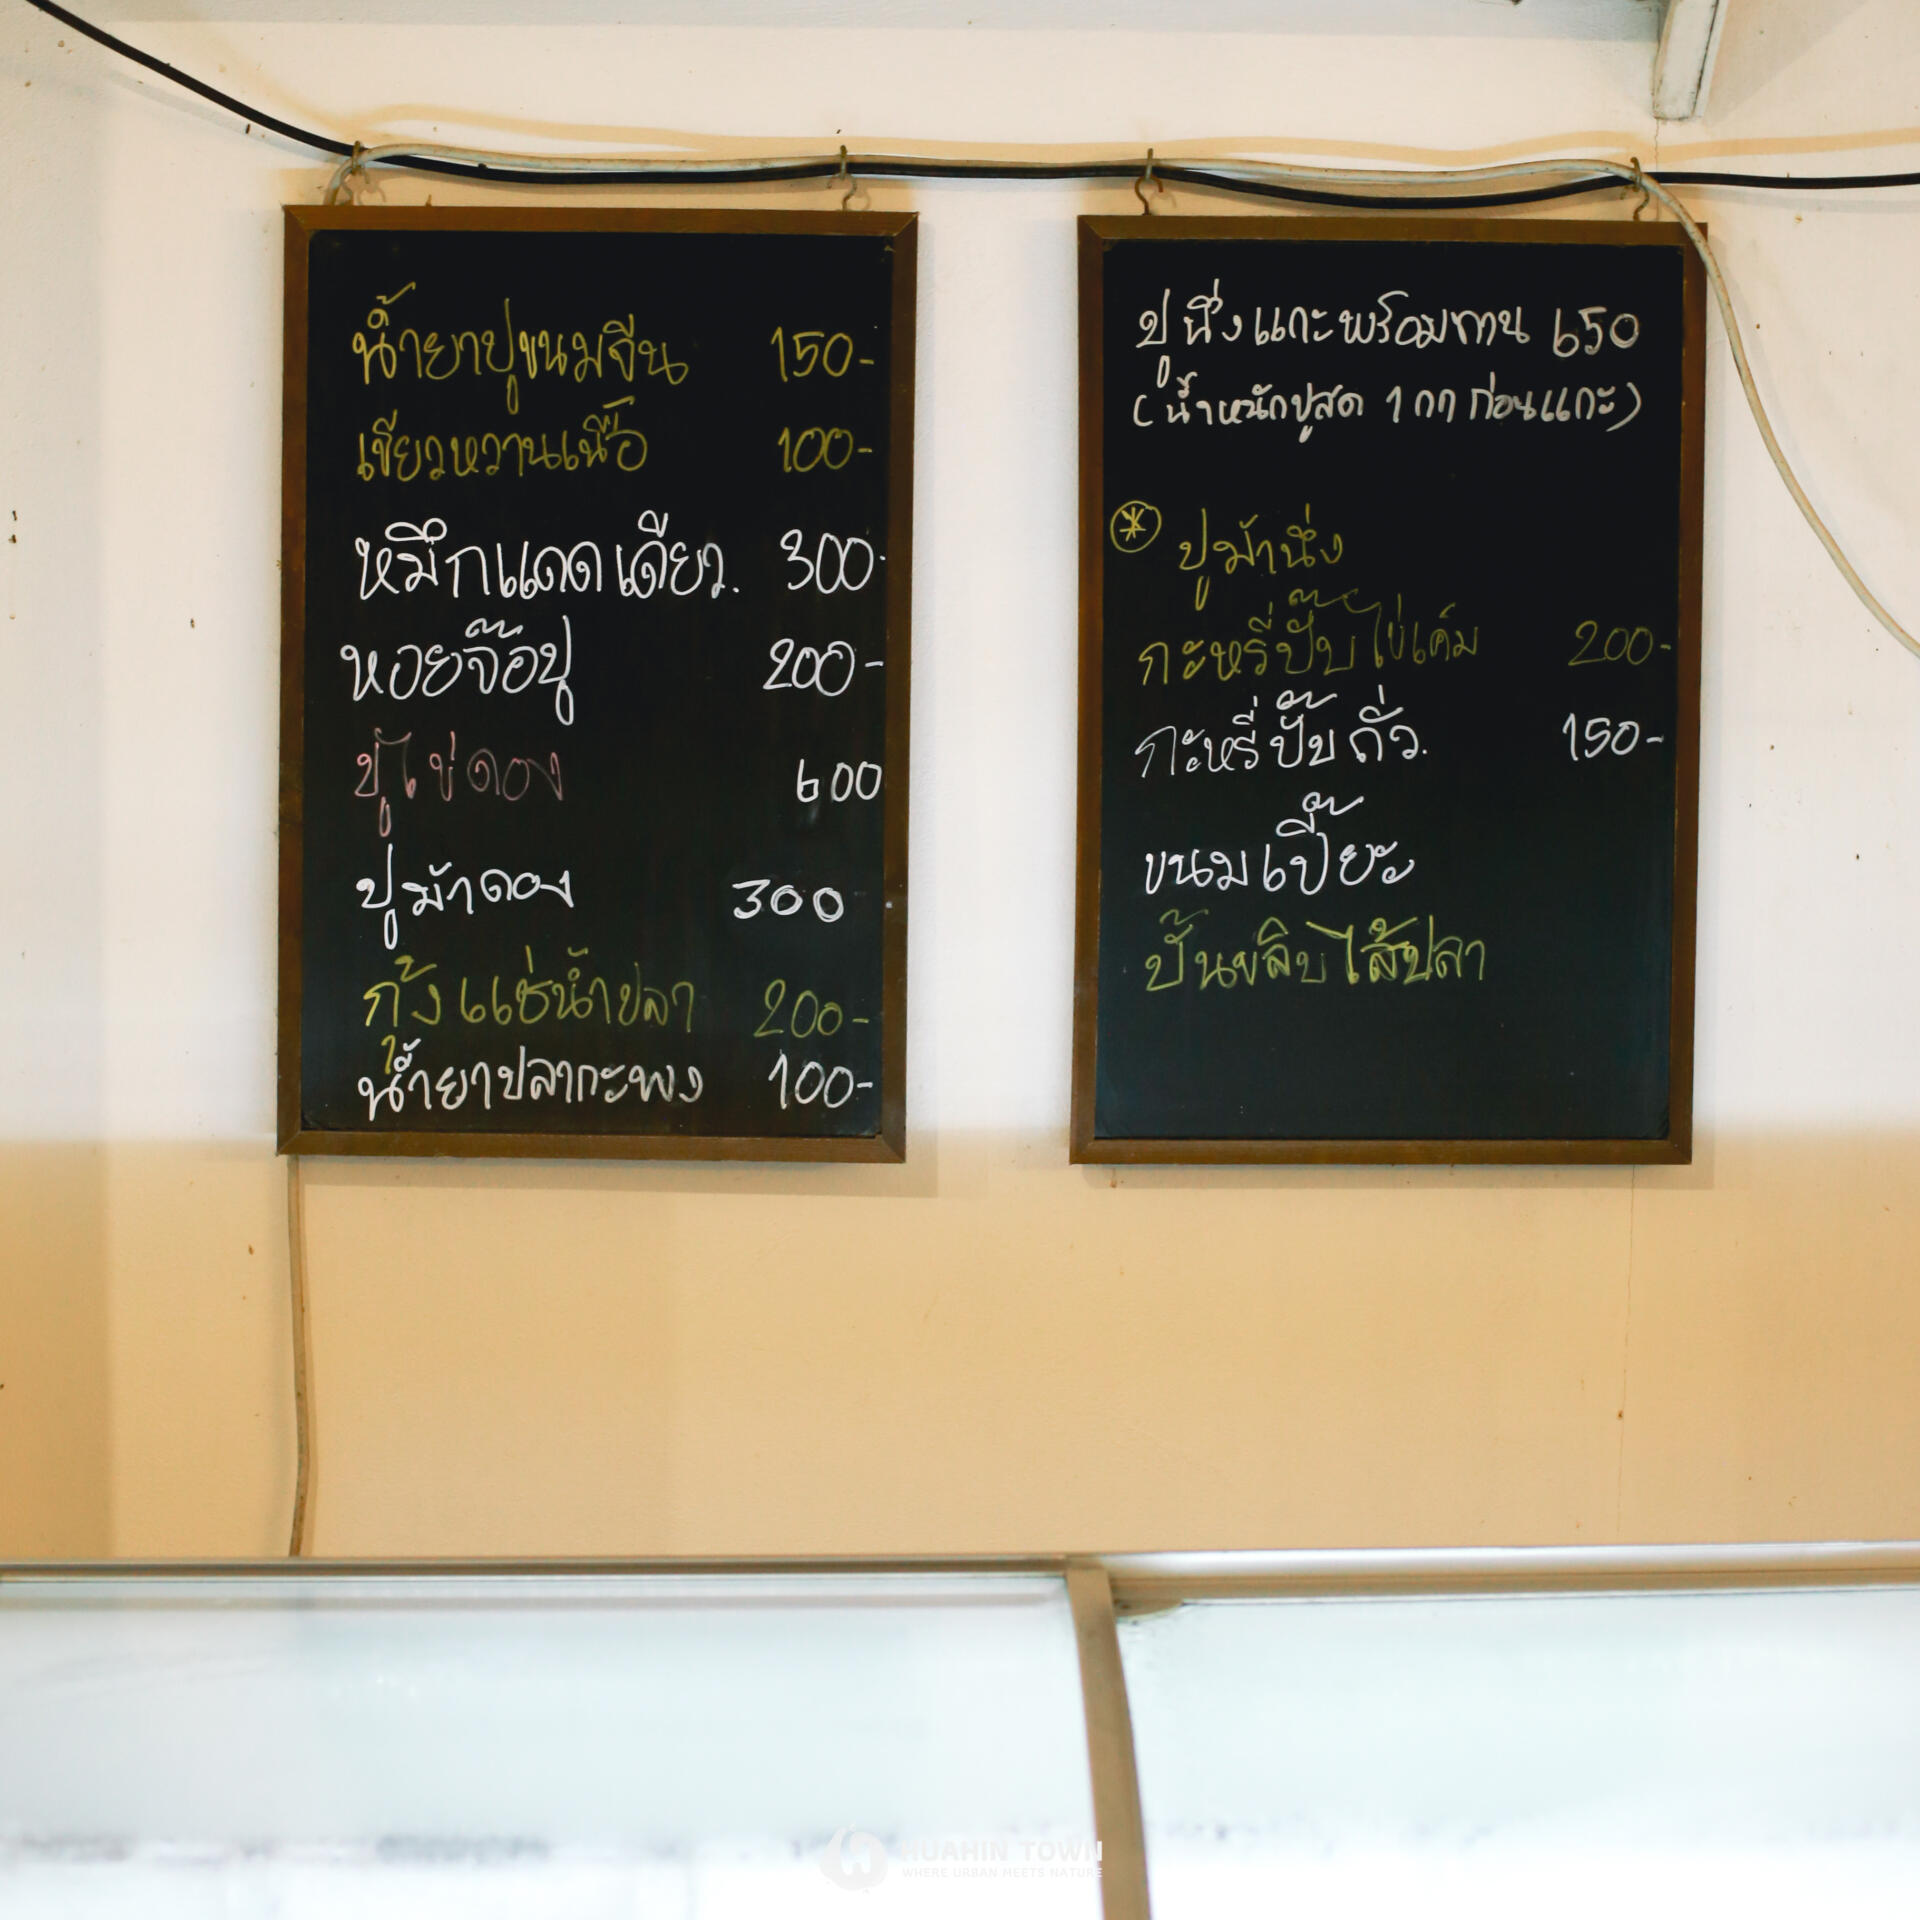 น้ำยาปูขนมจีน 150-
เขียวหวานเนื้อ 100-
หมึกแดดเดียว. 300-
หอยจ๊อปู 200-
ปูไข่ดอง 600
ปูม้าดอง 300
กุ้งแช่น้ำปลา 200-
น้ำยาปลากะพง 100-
ปูนึ่งแกะพร้อมทาน 650
(น้ำหนักปูสด 1 กก ก่อนแกะ)
* ปูม้านึ่ง
กะหรี่ปั๊บไข่เค็ม 200-
กะหรี่ปั๊บถั่ว. 150-
ขนมเปี๊ยะ
ปั้นขลิบไส้ปลา
HUAHIN TOWN
WHERE URBAN MEETS NATURE